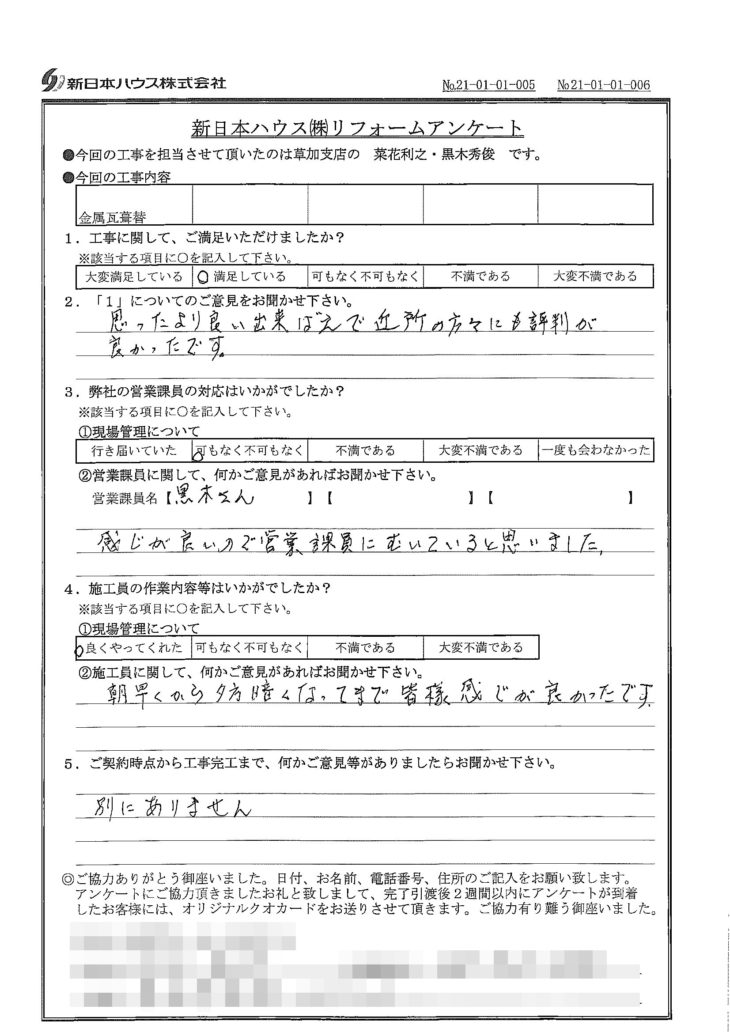 新日本ハウス株式会社 No.21-01-01-005 No.21-01-01-006
新日本ハウス㈱リフォームアンケート
●今回の工事を担当させて頂いたのは草加支店の 菜花利之・黒木秀俊 です。
●今回の工事内容
金属瓦葺替
1．工事に関して、ご満足いただけましたか？
※該当する項目に○を記入して下さい。
大変満足している ○満足している 可もなく不可もなく 不満である 大変不満である
2．「1」についてのご意見をお聞かせ下さい。
思ったより良い出来ばえで近所の方々にも評判が
良かったです。
3．弊社の営業課員の対応はいかがでしたか？
※該当する項目に○を記入して下さい。
①現場管理について
行き届いていた 可もなく不可もなく 不満である 大変不満である 一度も会わなかった
②営業課員に関して、何かご意見があればお聞かせ下さい。
営業課員名【黒木さん 】【 】【 】
感じが良いので営業課員にむいていると思いました。
4．施工員の作業内容等はいかがでしたか？
※該当する項目に○を記入して下さい。
①現場管理について
○良くやってくれた 可もなく不可もなく 不満である 大変不満である
②施工員に関して、何かご意見があればお聞かせ下さい。
朝早くから夕方暗くなってまで皆様感じが良かったです
5．ご契約時点から工事完工まで、何かご意見等がありましたらお聞かせ下さい。
別にありません
◎ご協力ありがとう御座いました。日付、お名前、電話番号、住所のご記入をお願い致します。
アンケートにご協力頂きましたお礼と致しまして、完了引渡後2週間以内にアンケートが到着
したお客様には、オリジナルクオカードをお送りさせて頂きます。ご協力有り難う御座いました。